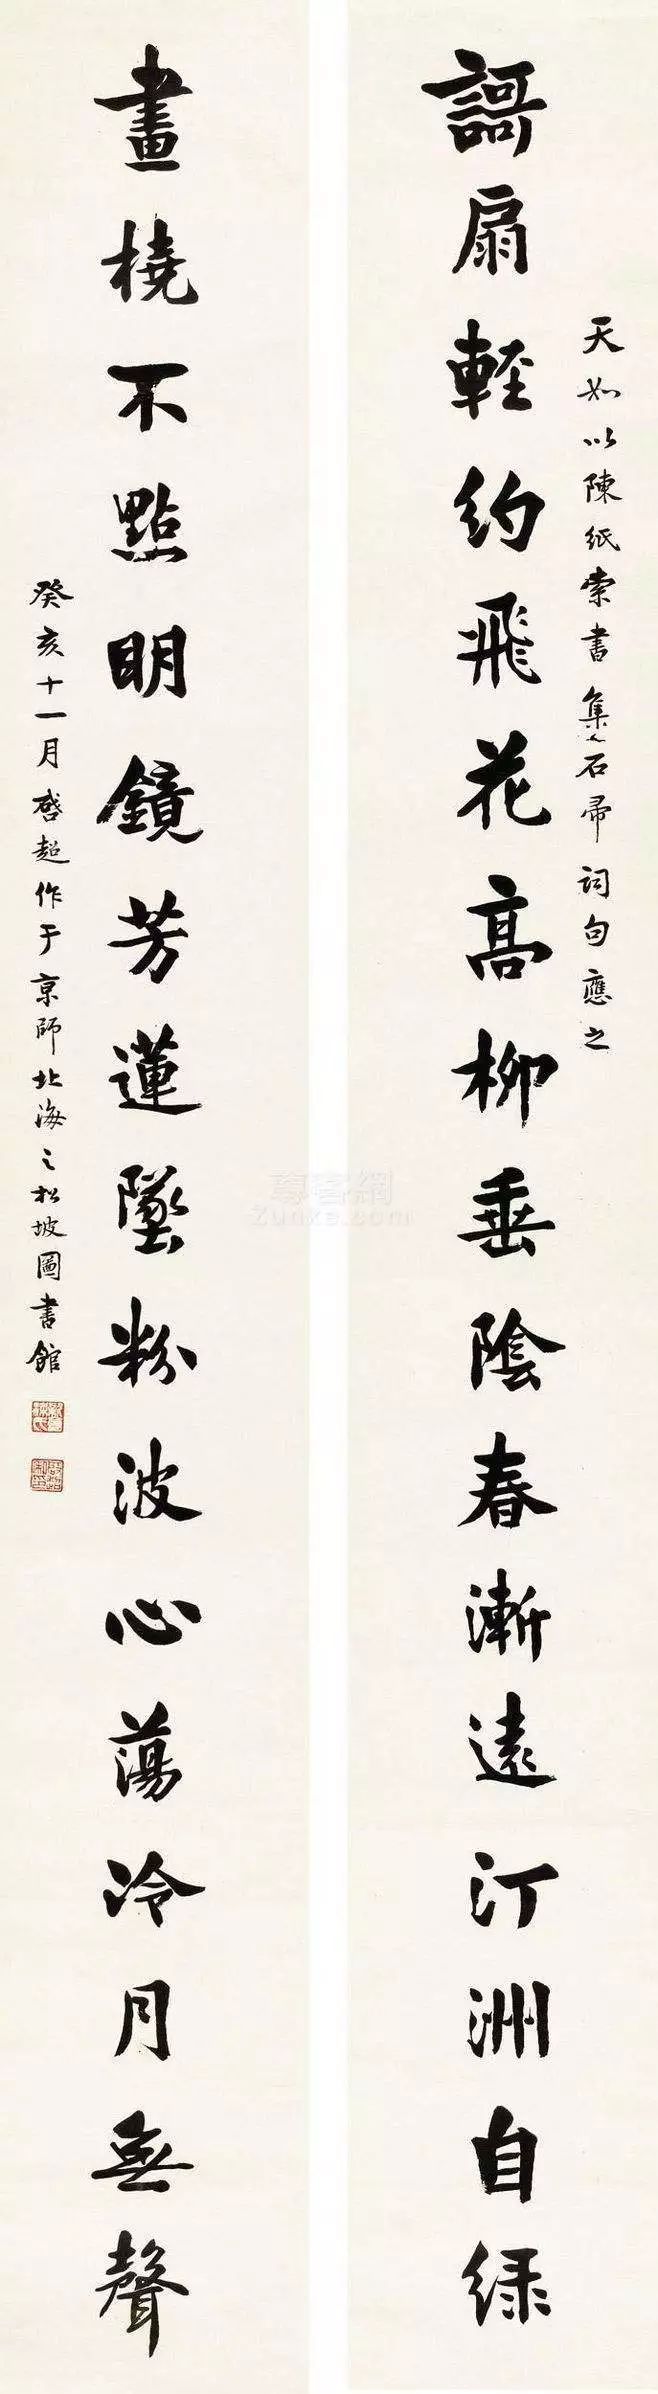 天如以陳紙索書集石帚詞句應之
謌扇輕約飛花高柳垂陰春漸遠汀洲自綠
畫橈不點明鏡芳蓮墜粉波心蕩冷月無聲
癸亥十一月啓超作于京師北海之松坡圖書館
尊客網
Zunke.com